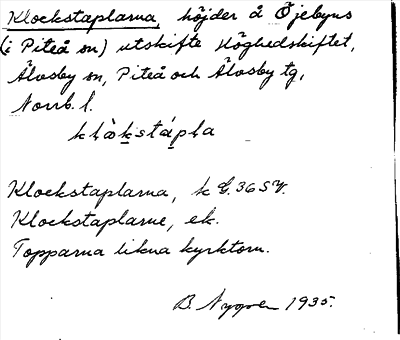 Klockstaplarna, höjder å Öjebyns
(i Piteå sn) utskifte Höghedskiftet,
Älvsby sn, Piteå och Älvsby tg,
Norrb. l.
klåkstápla
Klockstaplarna, k G. 36 SV.
Klockstaplarne, ek.
Topparna likna kyrktorn.
B. Nygren 1935.